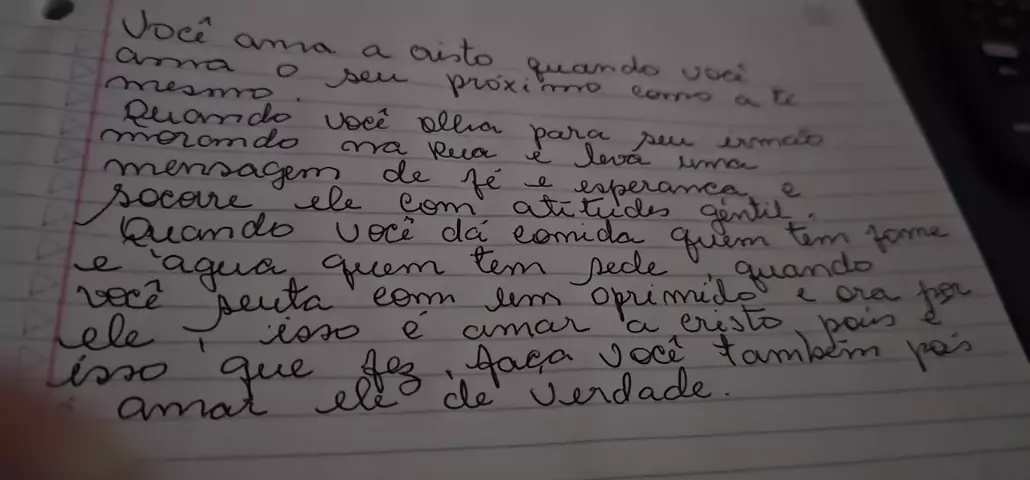 Você ama a cristo quando você
ama o seu próximo como a te
mesmo.
Quando você olha para seu irmão
morando na Rua e leva uma
mensagem de fé e esperança e
socore ele com atitudes gentil.
Quando você dá comida quem tem fome
e água quem tem sede, quando
você senta com um oprimido e ora por
ele, isso é amar a cristo, pois é
isso que fez, faça você também pois
amar ele de verdade.